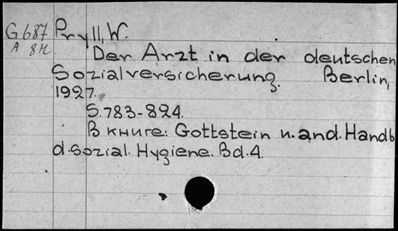 G 687 Pryll, W.
A 84
Der Arzt in der deutschen
Sozialversicherung. Berlin,
1927.
S. 783-824.
В книге: Gottstein u. and. Handb.
d. sozial. Hygiene. Bd. 4.